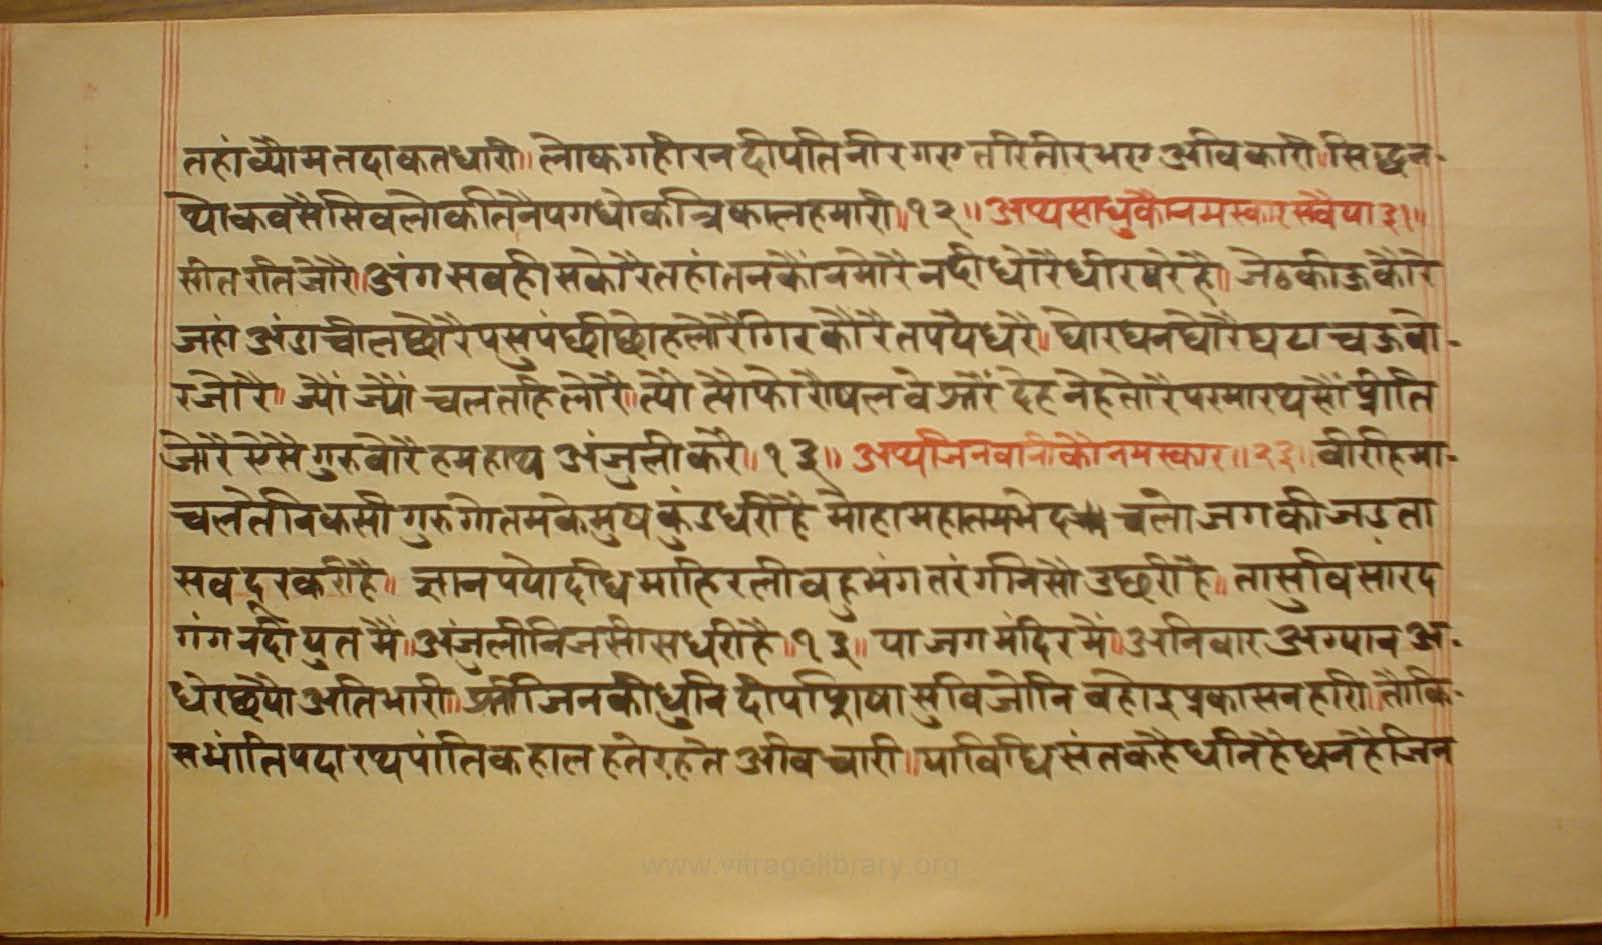 तहां व्यौमतदाकतधारी॥ लोकगहीरनदीपतिनीरगएतीरतीरभएअविकारी॥सिद्धन-
थोकवसैसिवलोकतिनैपगधोकत्रिकालहमारी॥१२॥ अथसाधुकौनमस्कारसवैया३१॥
सीतरतिजोरै॥अंगसवहीसकोरैतहांतनकौंनमोरैनदीधोरैधीरषरेहै॥ जेठकीझकोरै
जहां अंडाचीलछोरैपसुपंछीछोहलोरैगिरकोरैतपवैधरै॥ घोरघनघोरैघटाचऊवो-
रजोरै॥ ज्यौं ज्यौं चलतहिलोरै॥त्यौ त्यौफोरौषलवेअरैं देहनेहतोरैपरमारथसौं प्रीति
जोरैऐसेगुरुवोरैहमहाथ अंजुलीकरै॥१३॥ अथजिनवानीकौनमस्कार॥२३॥ वीरहिमा-
चलतैनिकसी गुरुगोतमकेमुषकुंडधरीहै मोहामहातमभेद चलो जगकीजडता
सवदरकरीहै॥ ज्ञानपयोदधिमाहिरलीवहुभंगतरंगनिसौउछरीहै॥ तासुविसारद
गंगनदीपुतमैं॥अंजुलीनिजसीसधरीहै॥१३॥ याजगमंदिरमैं॥अनिवारअग्यानअ-
धेरछयौअतिभारी॥श्रीजिनकीधुनिदीपशिषासुविजोनि वहोइप्रकासनहारी॥तौकि-
सभांतिपदारथपांतिकहालहतेरहते अविचारी॥याविधिसंतकहैधनिहैधनहैजिन
www.vitragelibrary.org